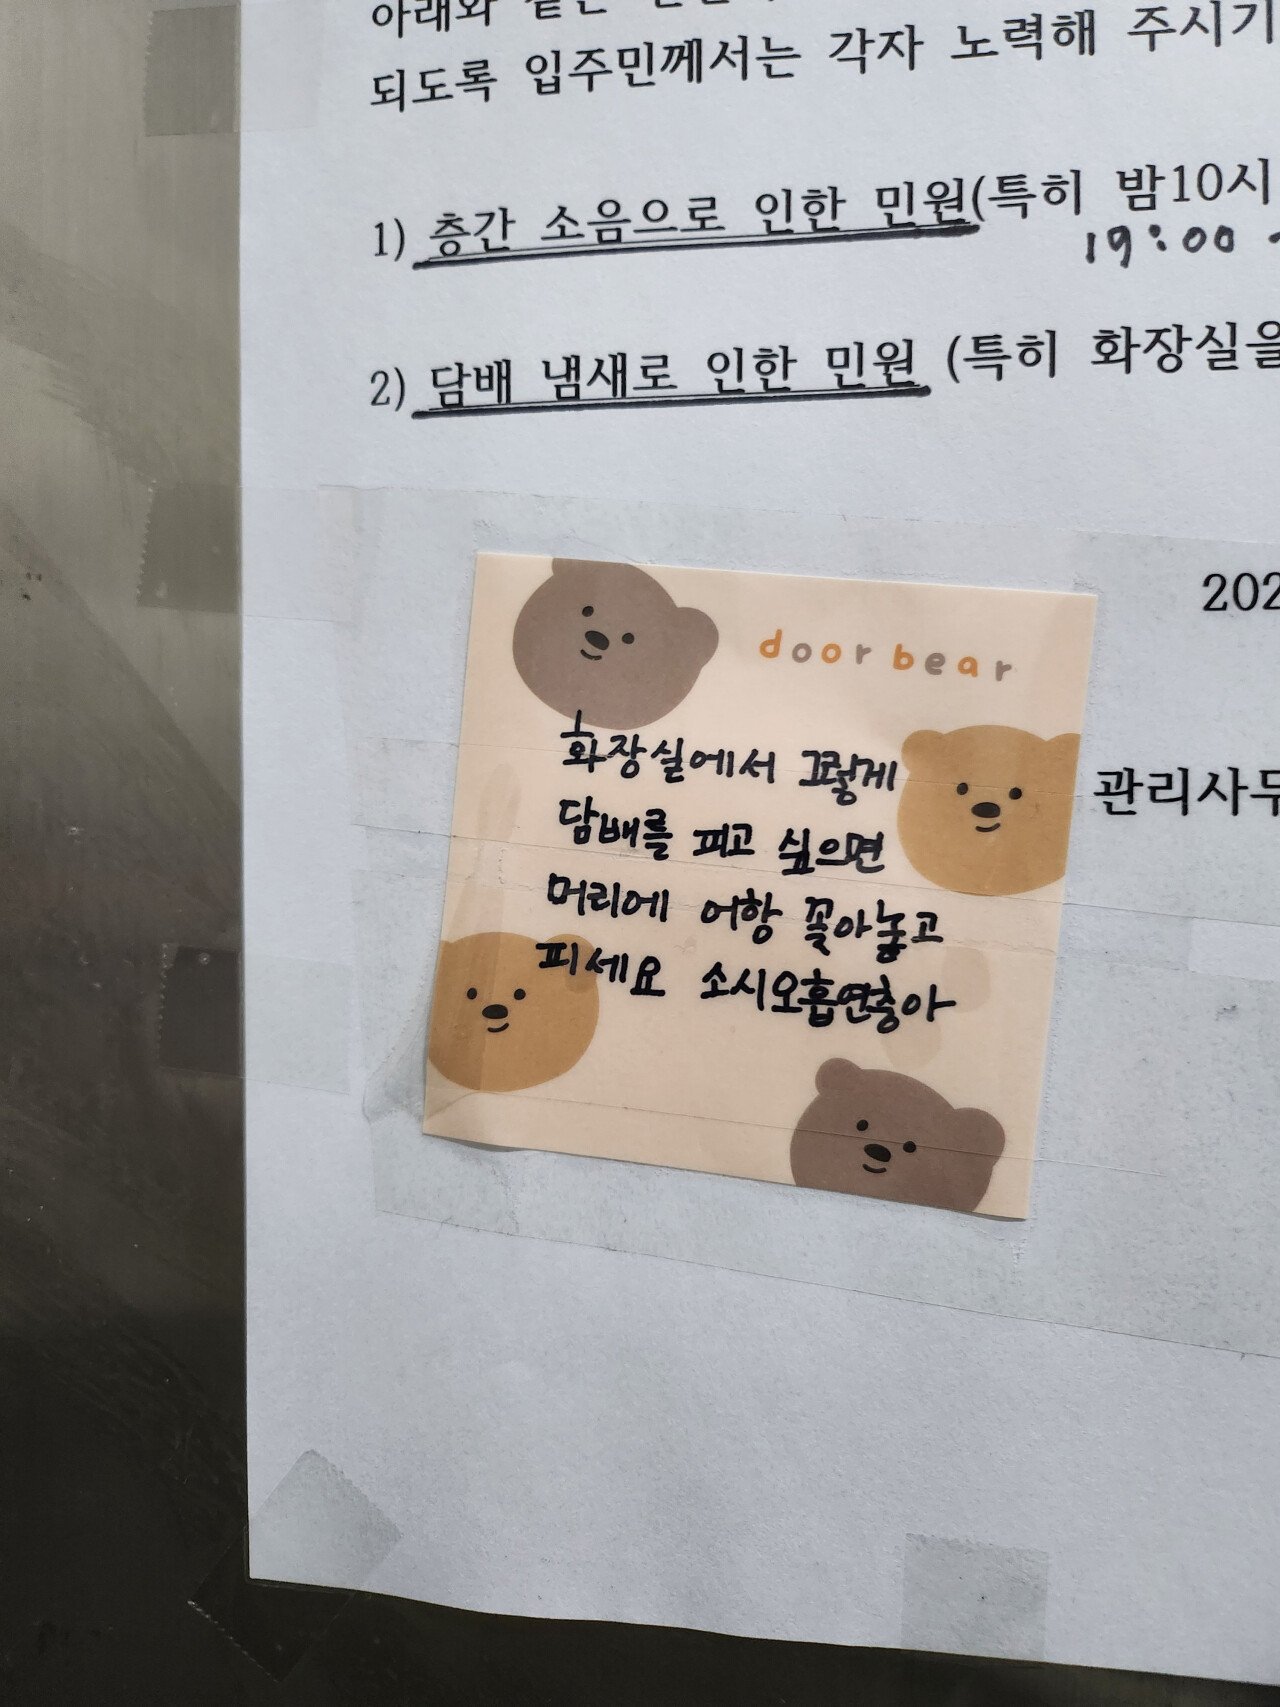 아래와 같은
되도록 입주민께서는 각자 노력해 주시기
1) 층간 소음으로 인한 민원(특히 밤10시
19:00
2) 담배 냄새로 인한 민원 (특히 화장실을
202
door bear
화장실에서 그렇게
담배를 피고 싶으면
머리에 어항 꼴아놓고
피세요 소시오흡연충아
관리사무